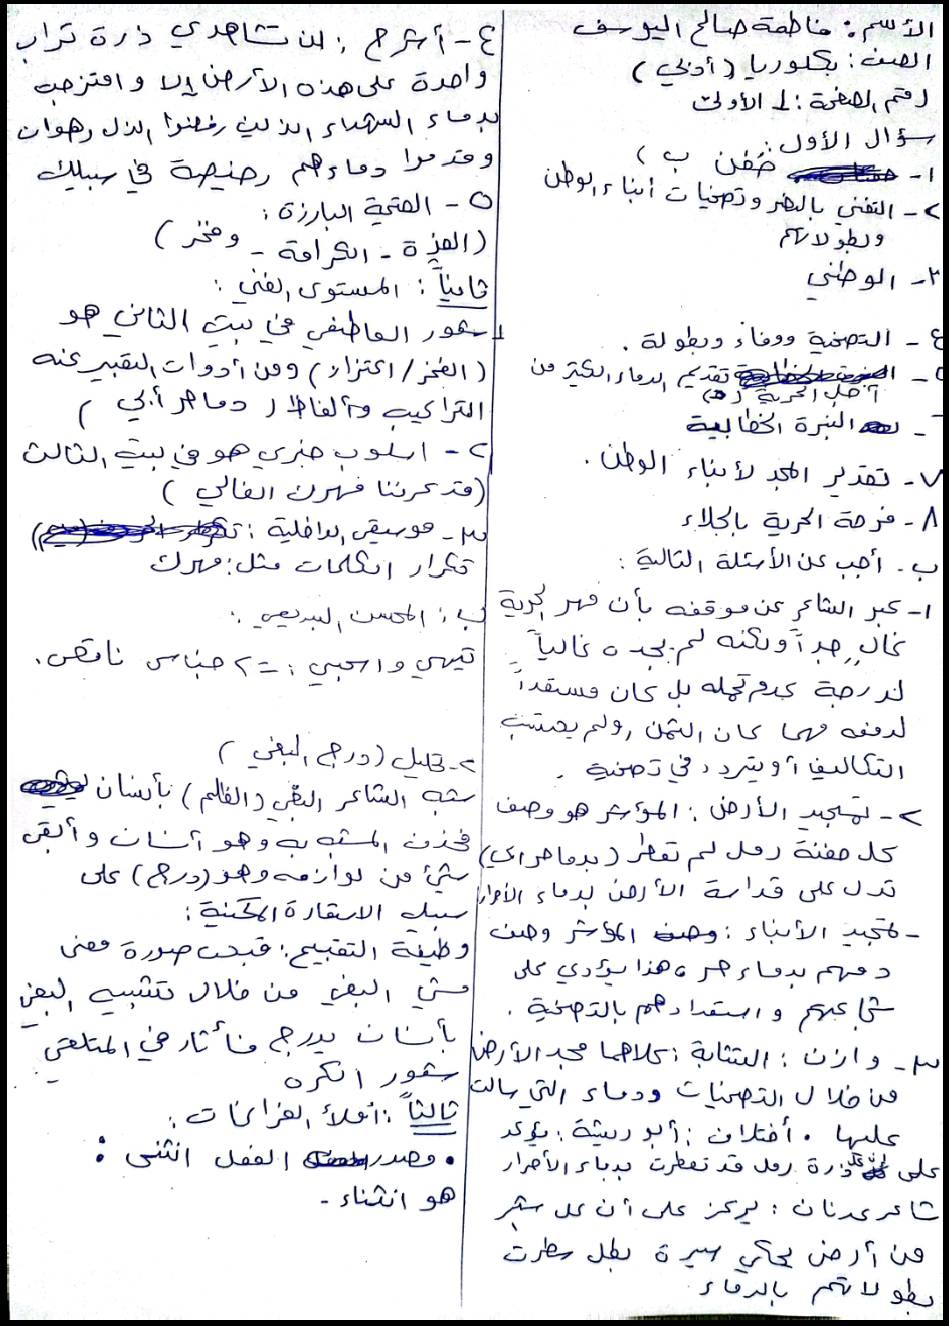 الأسم: فاطمة صالح اليوسف
الصف: بكلوريا (أدبي)
رقم الصفحة: 1 الأولى
سؤال الأول:
1- ضفن ب)
2- التغني بالنصر وتضحيات أبناء الوطن
وبطولاتهم
3- الوطني
4- التضحية ووفاء وبطولة.
5- تقديم الدماء الكثير من
أجل الحرية
6- النبرة الخطابية
7- تقدير المجد لأبناء الوطن.
8- فرحة الحرية بالجلاء
ب. أجب عن الأسئلة التالية:
1- عبر الشاعر عن موقفه بأن مهر الحرية
غالٍ جداً ولكنه لم يجده غالياً
لدرجة عدم تحمله بل كان مستعداً
لدفعه مهما كان الثمن، ولم يحتسب
التكاليف أو يتردد في تضحية.
2- تمجيد الأرض: المؤشر هو وصف
كل حفنة رمل لم تعطر (بدماحراي)
تدل على قداسة الأرض بدماء الأحرار
- تمجيد الأبناء: المؤشر وصف
دمهم بدماء حر، هذا يؤدي على
شجاعتهم واستعدادهم بالتضحية.
3- وازن: التشابة: كلاهما مجد الأرض
من خلال التضحيات ودماء التي سالت
عليها. أختلاف: أبو ريشة: يؤكد
على ذرة رمل قد تعطرت بدماء الأحرار
شاعر عدنان: يركز على أن كل شبر
من أرض يحكي سيرة بطل سطرت
بطولاتهم بالدماء
4- أشرح: لن تشاهدي ذرة تراب
واحدة على هذه الأرض إلا وامتزجت
بدماء الشهداء الذين رفضوا الذل وهوان
وقدموا دماءهم رخيصة في سبيلك
5- القيمة البارزة:
(العزة - الكرامة - وفخر)
ثانياً: المستوى الفني:
1- شعور العاطفي في بيت الثاني هو
(الفخر/اعتزاز) ومن أدوات التعبير عنه
التراكيب وألفاظ (دما حر أبي)
2- اسلوب خبري هو في بيت الثالث
(قد عرفنا مهرك الغالي)
3- موسيقى الداخلية:
تكرار الكلمات مثل: مهرك
ب: المحسن البديعي:
تيهي واسحبي: => جناس ناقص.
2- تحليل (درج البغي)
شبه الشاعر البغي (الظلم) بأنسان
فحذف المشبه به وهو أنسان وأبقى
شيئ من لوازمه وهو (درج) على
سبيل الاستعارة المكنية:
وظيفة التقبيح: قبحت صورة معنى
مشي البغي من خلال تشبيه البغي
بأنسان يدرج فأثار في المتلقي
شعور الكره
ثالثاً: أملأ الفراغات:
• مصدر الفعل انثنى:
هو انثناء.